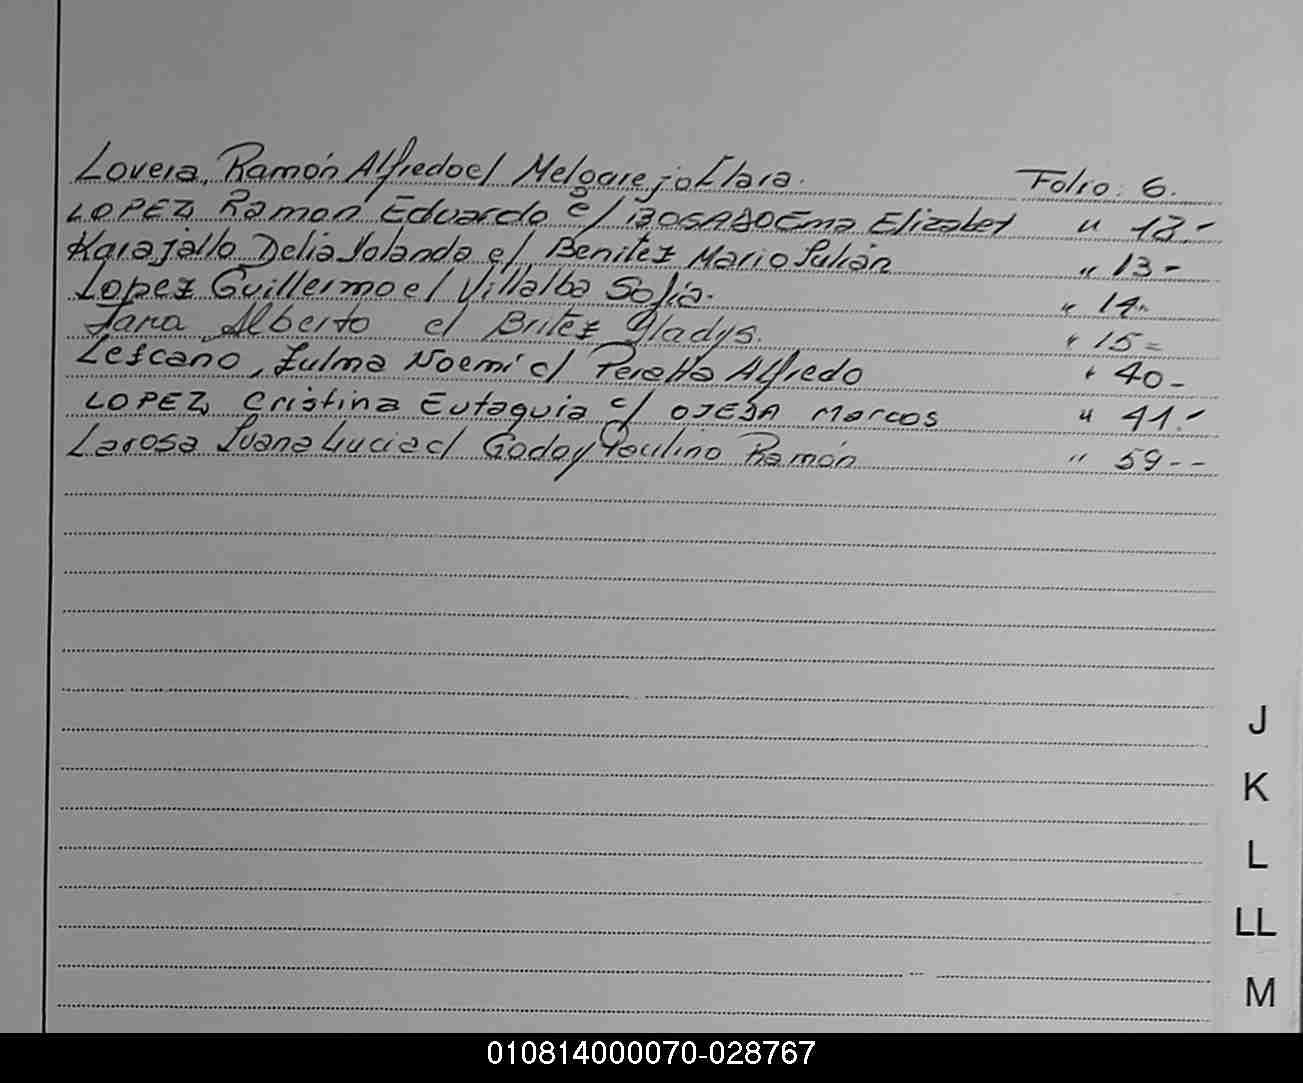 Lovera, Ramón Alfredo c/ Melgarejo Clara. Folio: 6.
LOPEZ, Ramon Eduardo c/ BOGADO Ema Elizabet " 12.-
Karajallo Delia Yolanda c/ Benitez Mario Julián " 13-
Lopez Guillermo c/ Villalba Sofia. " 14-
Jara Alberto c/ Britez Gladys. " 15=
Lescano, Zulma Noemí c/ Peralta Alfredo " 40-
LOPEZ, Cristina Eutaquia c/ OJEDA Marcos " 41.-
Larosa Juana Lucia c/ Godoy Paulino Ramón " 59--
J
K
L
LL
M
010814000070-028767